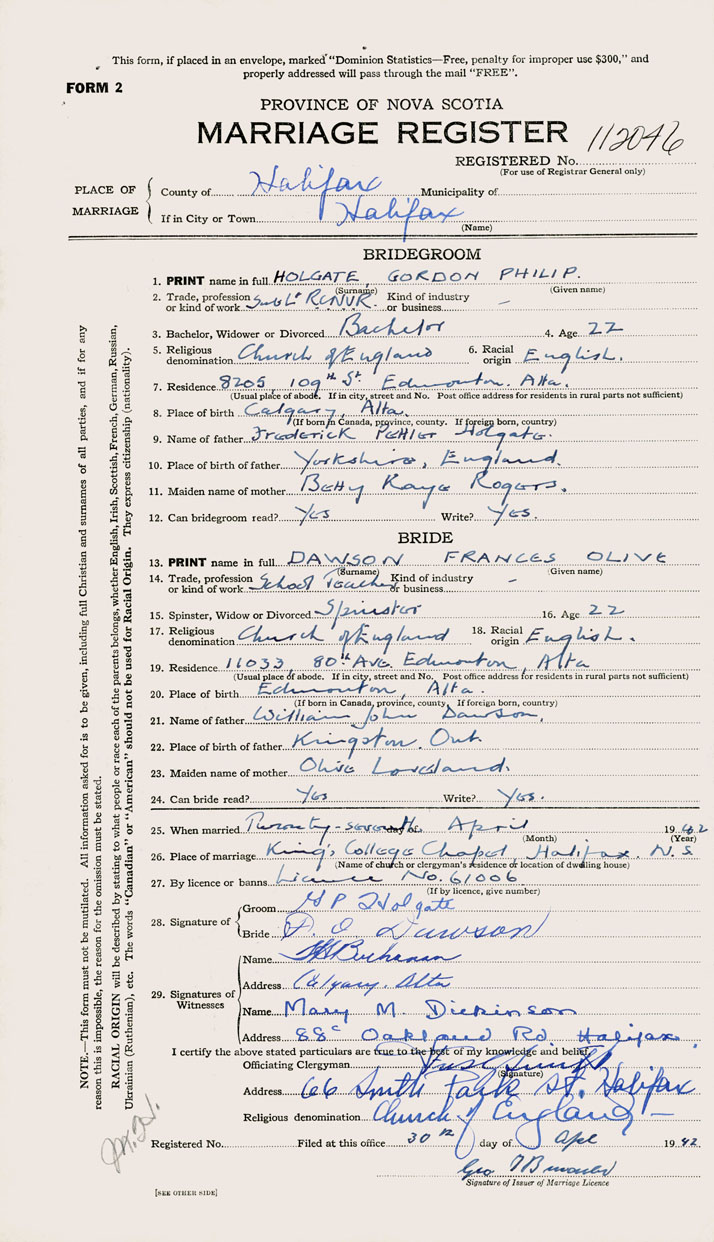 This form, if placed in an envelope, marked "Dominion Statistics—Free, penalty for improper use $300," and
properly addressed will pass through the mail "FREE".
FORM 2
PROVINCE OF NOVA SCOTIA
MARRIAGE REGISTER 112046
REGISTERED No.
(For use of Registrar General only)
PLACE OF MARRIAGE
County of Halifax Municipality of
If in City or Town Halifax
(Name)
BRIDEGROOM
1. PRINT name in full HOLGATE, GORDON PHILIP.
(Surname) (Given name)
2. Trade, profession or kind of work Sub Lt RCNVR. Kind of industry or business —
3. Bachelor, Widower or Divorced Bachelor 4. Age 22
5. Religious denomination Church of England 6. Racial origin English.
7. Residence 8205, 109th St. Edmonton. Alta.
(Usual place of abode. If in city, street and No. Post office address for residents in rural parts not sufficient)
8. Place of birth Calgary, Alta.
(If born in Canada, province, county. If foreign born, country)
9. Name of father Frederick Holgate.
10. Place of birth of father Yorkshire, England.
11. Maiden name of mother Betty Kaye Rogers.
12. Can bridegroom read? Yes Write? Yes.
BRIDE
13. PRINT name in full DAWSON FRANCES OLIVE
(Surname) (Given name)
14. Trade, profession or kind of work School Teacher Kind of industry or business —
15. Spinster, Widow or Divorced Spinster 16. Age 22
17. Religious denomination Church of England 18. Racial origin English.
19. Residence 11033, 80th Ave Edmonton, Alta
(Usual place of abode. If in city, street and No. Post office address for residents in rural parts not sufficient)
20. Place of birth Edmonton, Alta.
(If born in Canada, province, county. If foreign born, country)
21. Name of father William John Dawson.
22. Place of birth of father Kingston. Ont.
23. Maiden name of mother Olive Loveland.
24. Can bride read? Yes Write? Yes.
25. When married Twenty-seventh day of April 1942
(Month) (Year)
26. Place of marriage King's College Chapel Halifax. N.S.
(Name of church or clergyman's residence or location of dwelling house)
27. By licence or banns Licence No. 61006
(If by licence, give number)
28. Signature of
Groom G P Holgate
Bride F. O Dawson
29. Signatures of Witnesses
Name Buchanan
Address Calgary. Alta
Name Mary M. Dickinson
Address 88c Oakland Rd Halifax.
I certify the above stated particulars are true to the best of my knowledge and belief.
Officiating Clergyman
(Signature)
Address 66 South Park St. Halifax
Religious denomination Church of England —
Registered No. Filed at this office 30th day of Apl 1942
Geo
Signature of Issuer of Marriage Licence
[SEE OTHER SIDE]
NOTE.—This form must not be mutilated. All information asked for is to be given, including full Christian and surnames of all parties, and if for any
reason this is impossible, the reason for the omission must be stated.
RACIAL ORIGIN will be described by stating to what people or race each of the parents belongs, whether English, Irish, Scottish, French, German, Russian,
Ukrainian (Ruthenian), etc. The words "Canadian" or "American" should not be used for Racial Origin. They express citizenship (nationality).